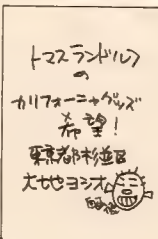 トマスランドルフ
の
カリフォーニャグッズ
希望!
東京都杉並区
大地ヨシオ